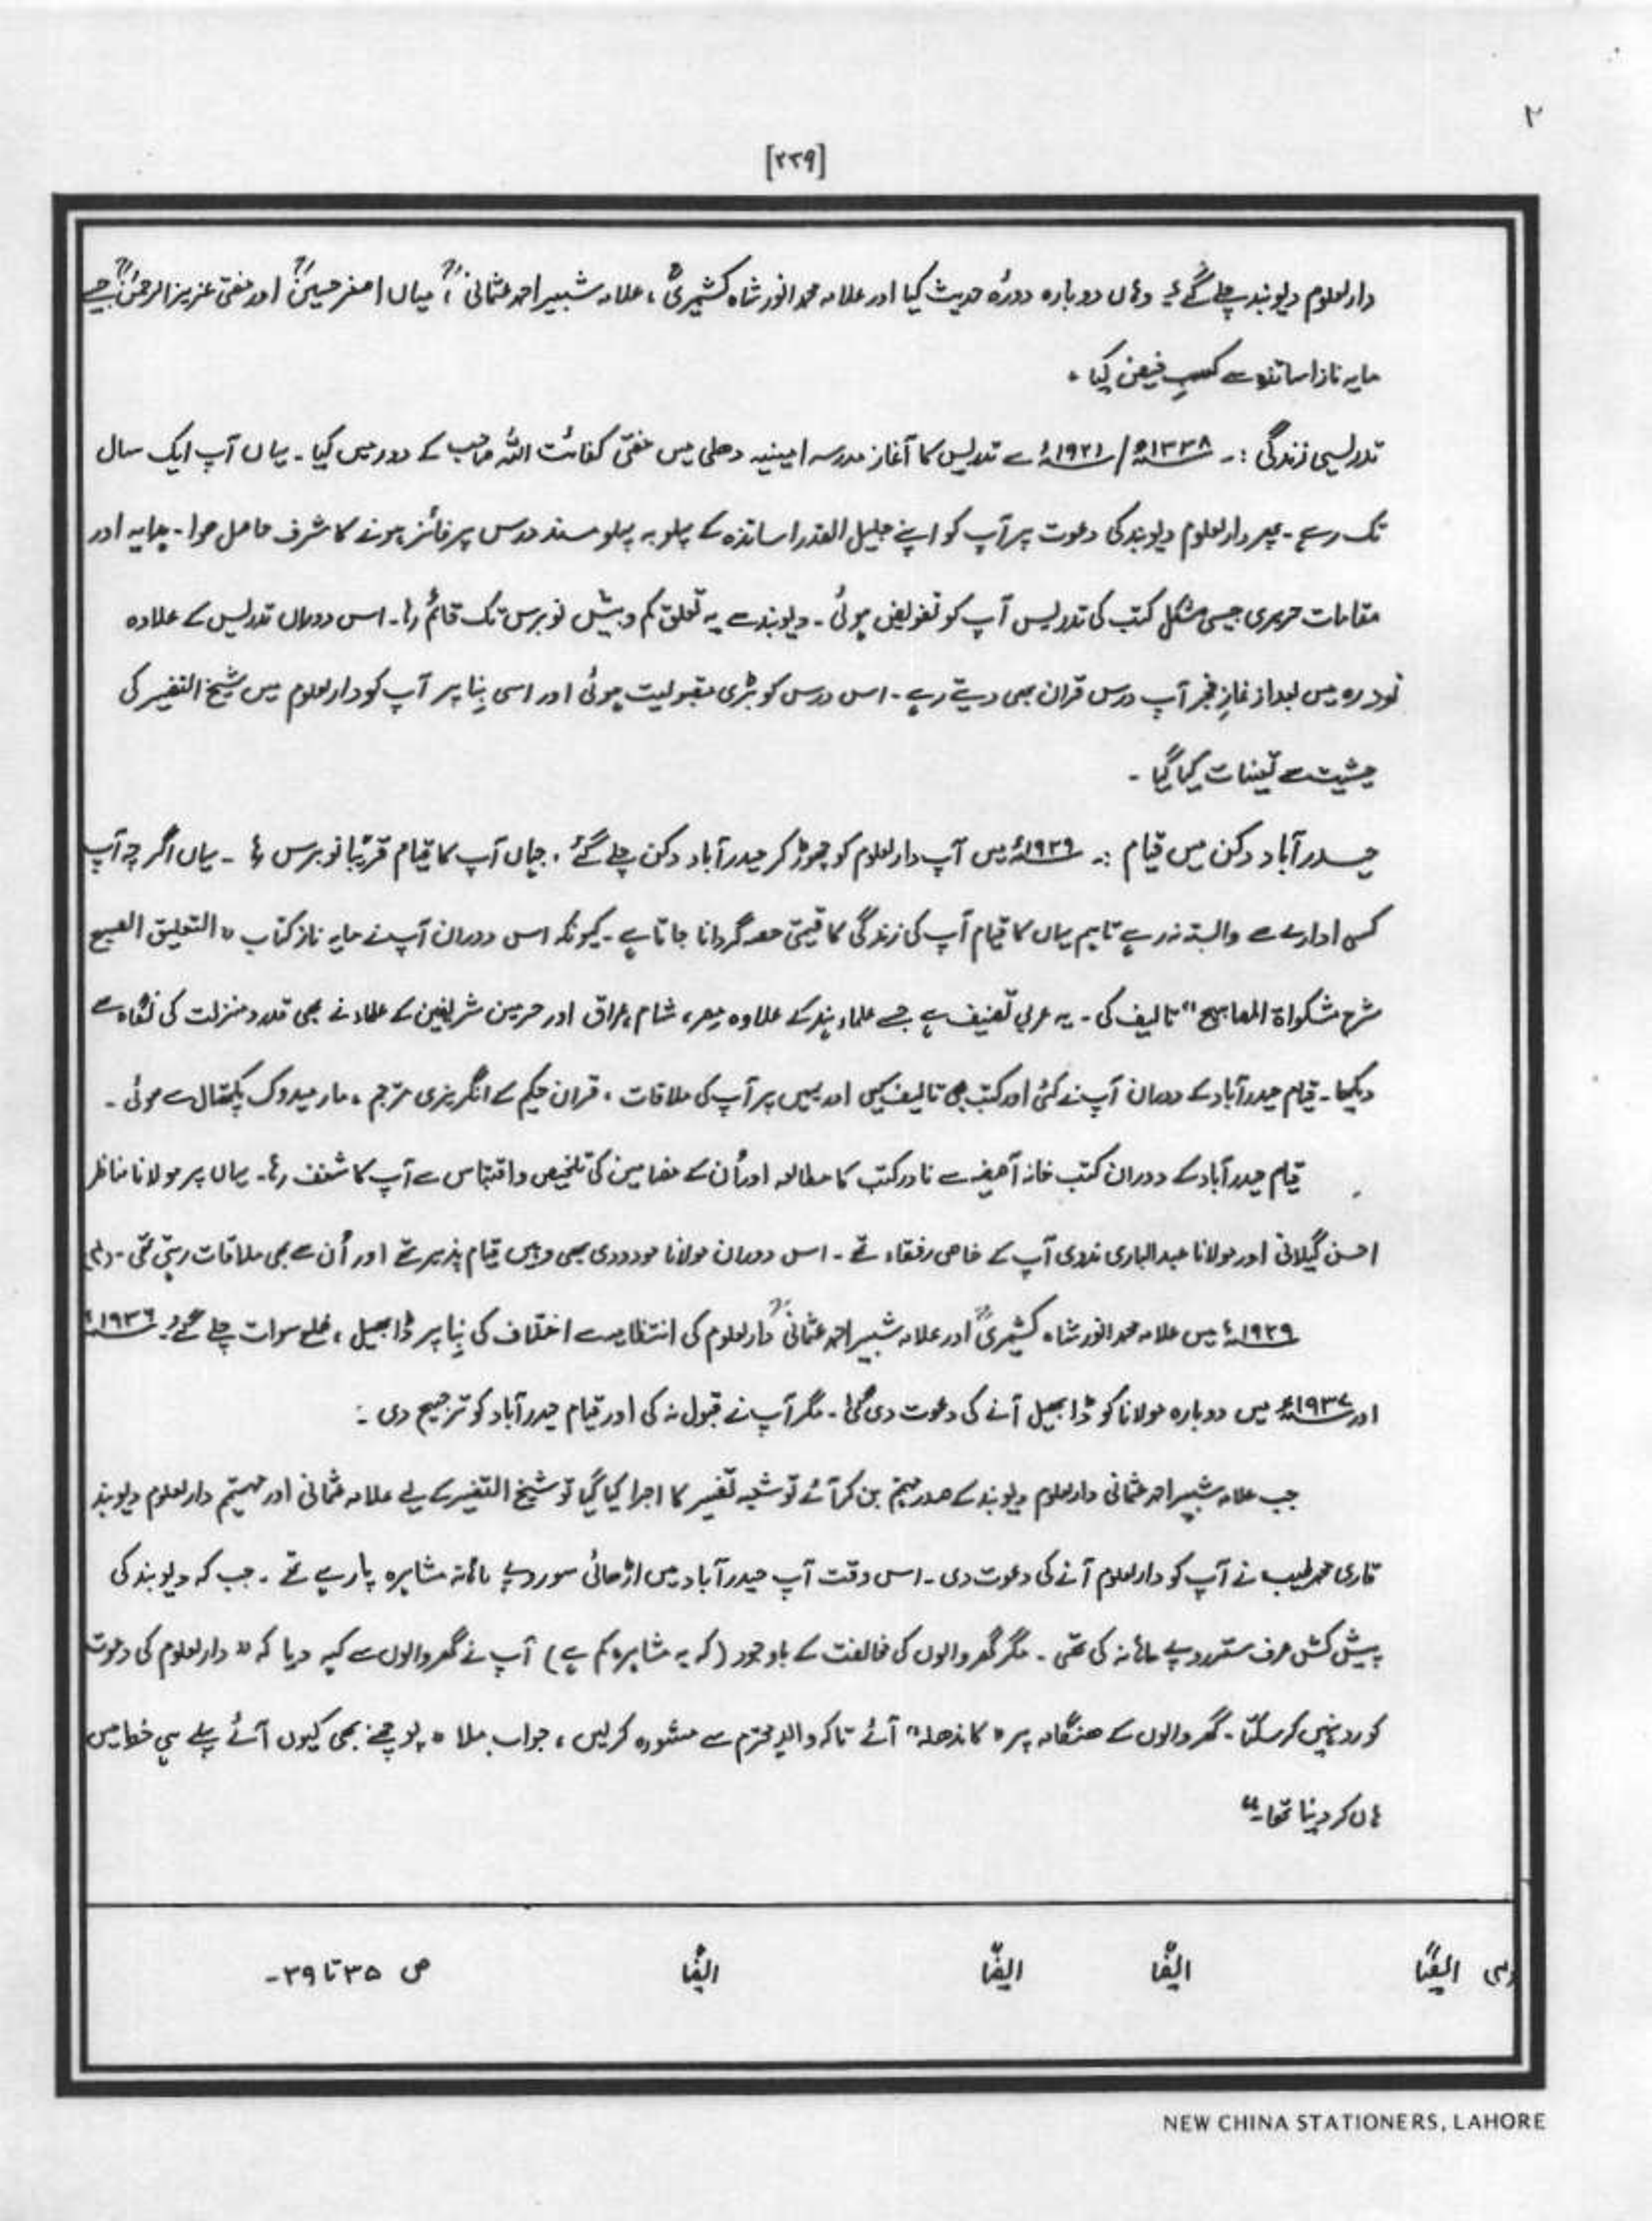 ۲
[۲۲۹]
دارلعلوم دیوبند چلے گئے۔ وہاں دوبارہ دورۂ حدیث کیا اور علامہ محمد انور شاہ کشمیریؒ، علامہ شبیر احمد عثمانیؒ، میاں اصغر حسینؒ اور مفتی عزیز الرحمٰنؒ جیسے
مایہ ناز اساتذہ سے کسبِ فیض کیا۔
تدریسی زندگی :۔ ۱۳۳۸ھ/۱۹۲۱ء سے تدریس کا آغاز مدرسہ امینیہ دھلی میں مفتی کفائت اللہ صاحب کے دور میں کیا۔ یہاں آپ ایک سال
تک رہے۔ پھر دارلعلوم دیوبند کی دعوت پر آپ کو اپنے جلیل القدر اساتذہ کے پہلو بہ پہلو مسند درس پر فائز ہونے کا شرف حاصل ھوا۔ ہدایہ اور
مقامات حریری جیسی مشکل کتب کی تدریس آپ کو تفویض ہوئی۔ دیوبند سے یہ تعلق کم و بیش نو برس تک قائم رہا۔ اس دوران تدریس کے علاوہ
نودرہ میں بعد از نمازِ فجر آپ درس قران بھی دیتے رہے۔ اس درس کو بڑی مقبولیت ہوئی اور اسی بِنا پر آپ کو دارلعلوم میں شیخ التفسیر کی
حیثیت سے تعینات کیا گیا۔
حیدر آباد دکن میں قیام :۔ ۱۹۲۹ء میں آپ دارلعلوم کو چھوڑ کر حیدر آباد دکن چلے گئے، جہاں آپ کا قیام قریبًا نو برس رہا ۔ یہاں اگرچہ آپ
کسی ادارے سے وابستہ نہ رہے تاہم یہاں کا قیام آپ کی زندگی کا قیمتی حصہ گردانا جاتا ہے۔ کیونکہ اس دوران آپ نے مایہ ناز کتاب "التعلیق الصبیح
شرح مشکواۃ المصابیح" تالیف کی۔ یہ عربی تصنیف ہے جسے علماءِ ہند کے علاوہ مصر، شام، عراق اور حرمین شریفین کے علماء نے بھی قدر و منزلت کی نگاہ سے
دیکھا۔ قیام حیدر آباد کے دوران آپ نے کئی اور کتب بھی تالیف کیں اور یہیں پر آپ کی ملاقات، قران حکیم کے انگریزی مترجم، مارمیڈوک پکتھال سے ھوئی۔
قیام حیدر آباد کے دوران کتب خانہ آصفیہ سے نادر کتب کا مطالعہ اور اُن کے مضامین کی تلخیص و اقتباس سے آپ کا شغف رہا۔ یہاں پر مولانا مناظر
احسن گیلانی اور مولانا عبدالباری ندوی آپ کے خاص رفقاء تھے۔ اس دوران مولانا مودودی بھی وہیں قیام پذیر تھے اور اُن سے بھی ملاقات رہتی تھی۔
۱۹۲۹ء میں علامہ محمد انور شاہ کشمیریؒ اور علامہ شبیر احمد عثمانیؒ دارلعلوم کی انتظامیہ سے اختلاف کی بِنا پر ڈابھیل، ضلع سوات چلے گئے۔ ۱۹۳۶ء
اور ۱۹۳۷ء میں دوبارہ مولانا کو ڈابھیل آنے کی دعوت دی گئی۔ مگر آپ نے قبول نہ کی اور قیام حیدر آباد کو ترجیح دی ۔
جب علامہ شبیر احمد عثمانی دارلعلوم دیوبند کے صدر مہتمم بن کر آئے تو شعبہ تفسیر کا اجرا کیا گیا تو شیخ التفسیر کے لیے علامہ عثمانی اور مہتمم دارلعلوم دیوبند
قاری محمد طیب نے آپ کو دارلعلوم آنے کی دعوت دی۔ اس وقت آپ حیدر آباد میں اڑھائی سو روپے ماہانہ مشاہرہ پا رہے تھے۔ جب کہ دیوبند کی
پیش کش صرف ستر روپے ماہانہ کی تھی۔ مگر گھر والوں کی مخالفت کے باوجود (کہ یہ مشاہرہ کم ہے) آپ نے گھر والوں سے کہہ دیا کہ "دارلعلوم کی دعوت
کو رد نہیں کر سکتا۔ گھر والوں کے ھنگامہ پر "کاندھلہ" آئے تاکہ والدِ محترم سے مشورہ کر لیں، جواب ملا "پوچھنے بھی کیوں آئے پہلے ہی خط میں
ہاں کر دینا تھا۔"
ایضًا ایضًا ایضًا ایضًا ص ۳۵ تا ۳۹۔
NEW CHINA STATIONERS, LAHORE